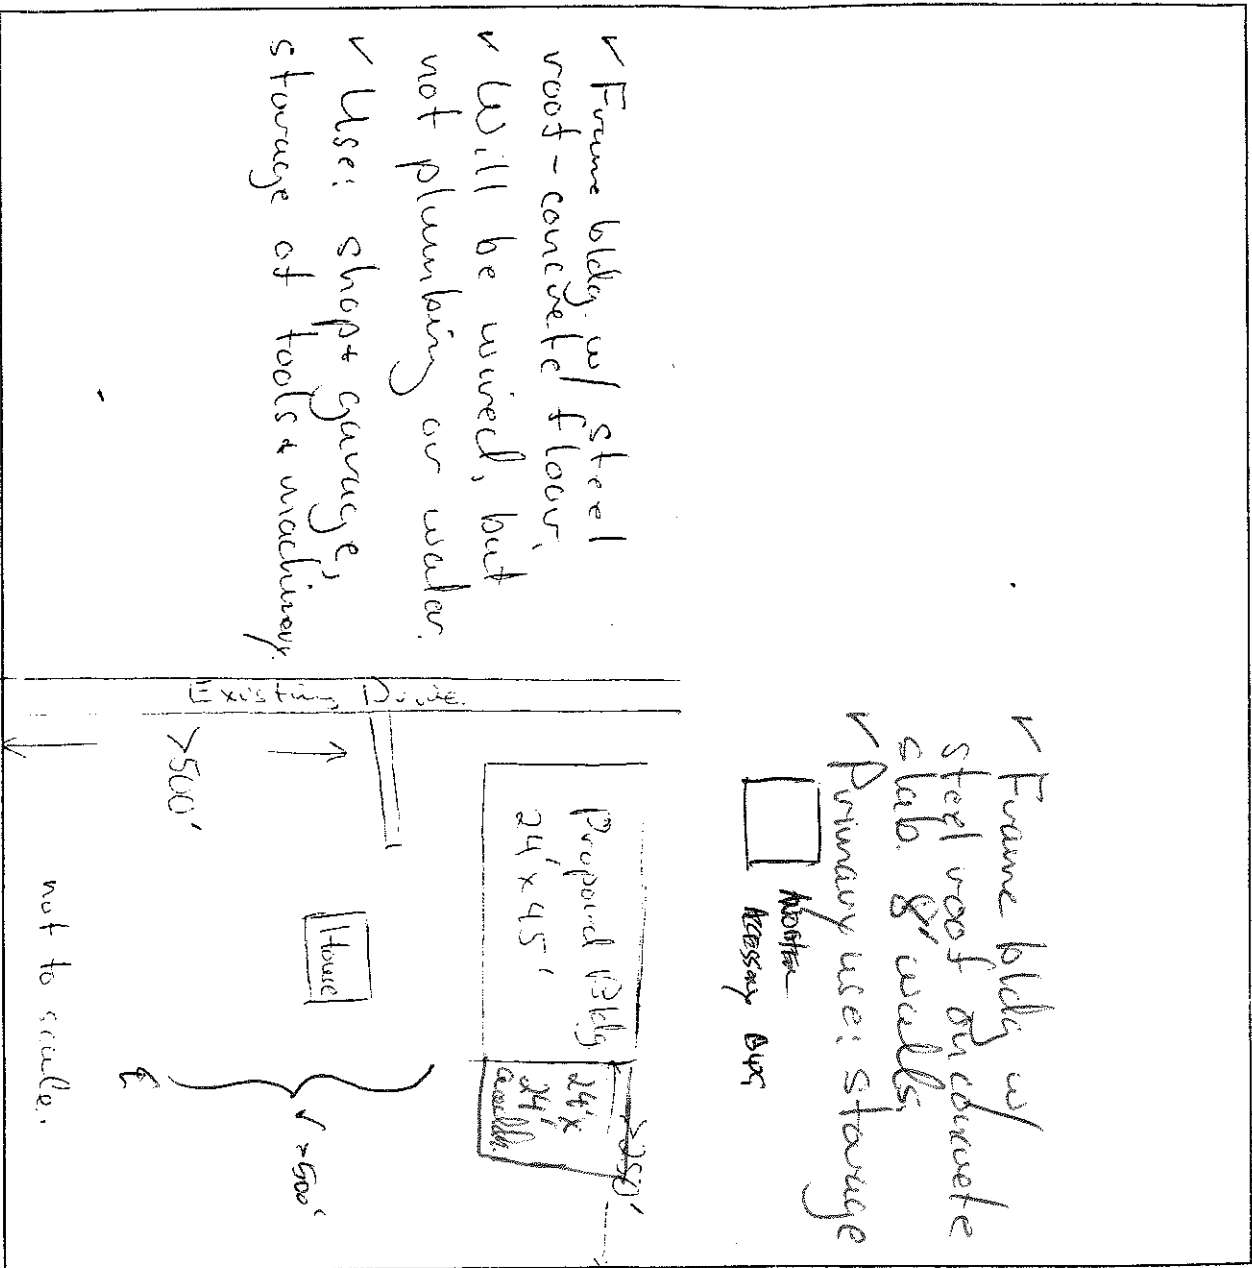 ✓ Frame bldg w/
steel roof on concrete
slab. 8' walls.
✓ Primary use: storage
Accessory Bldg
✓ Frame bldg. w/ steel
roof - concrete floor.
✓ Will be wired, but
not plumbing or water.
✓ Use: shop + garage,
storage of tools + machinery.
Existing Drive
Proposed Bldg
24' x 45'
24' x
24'
>250'
House
>500'
✓ >500'
not to scale.